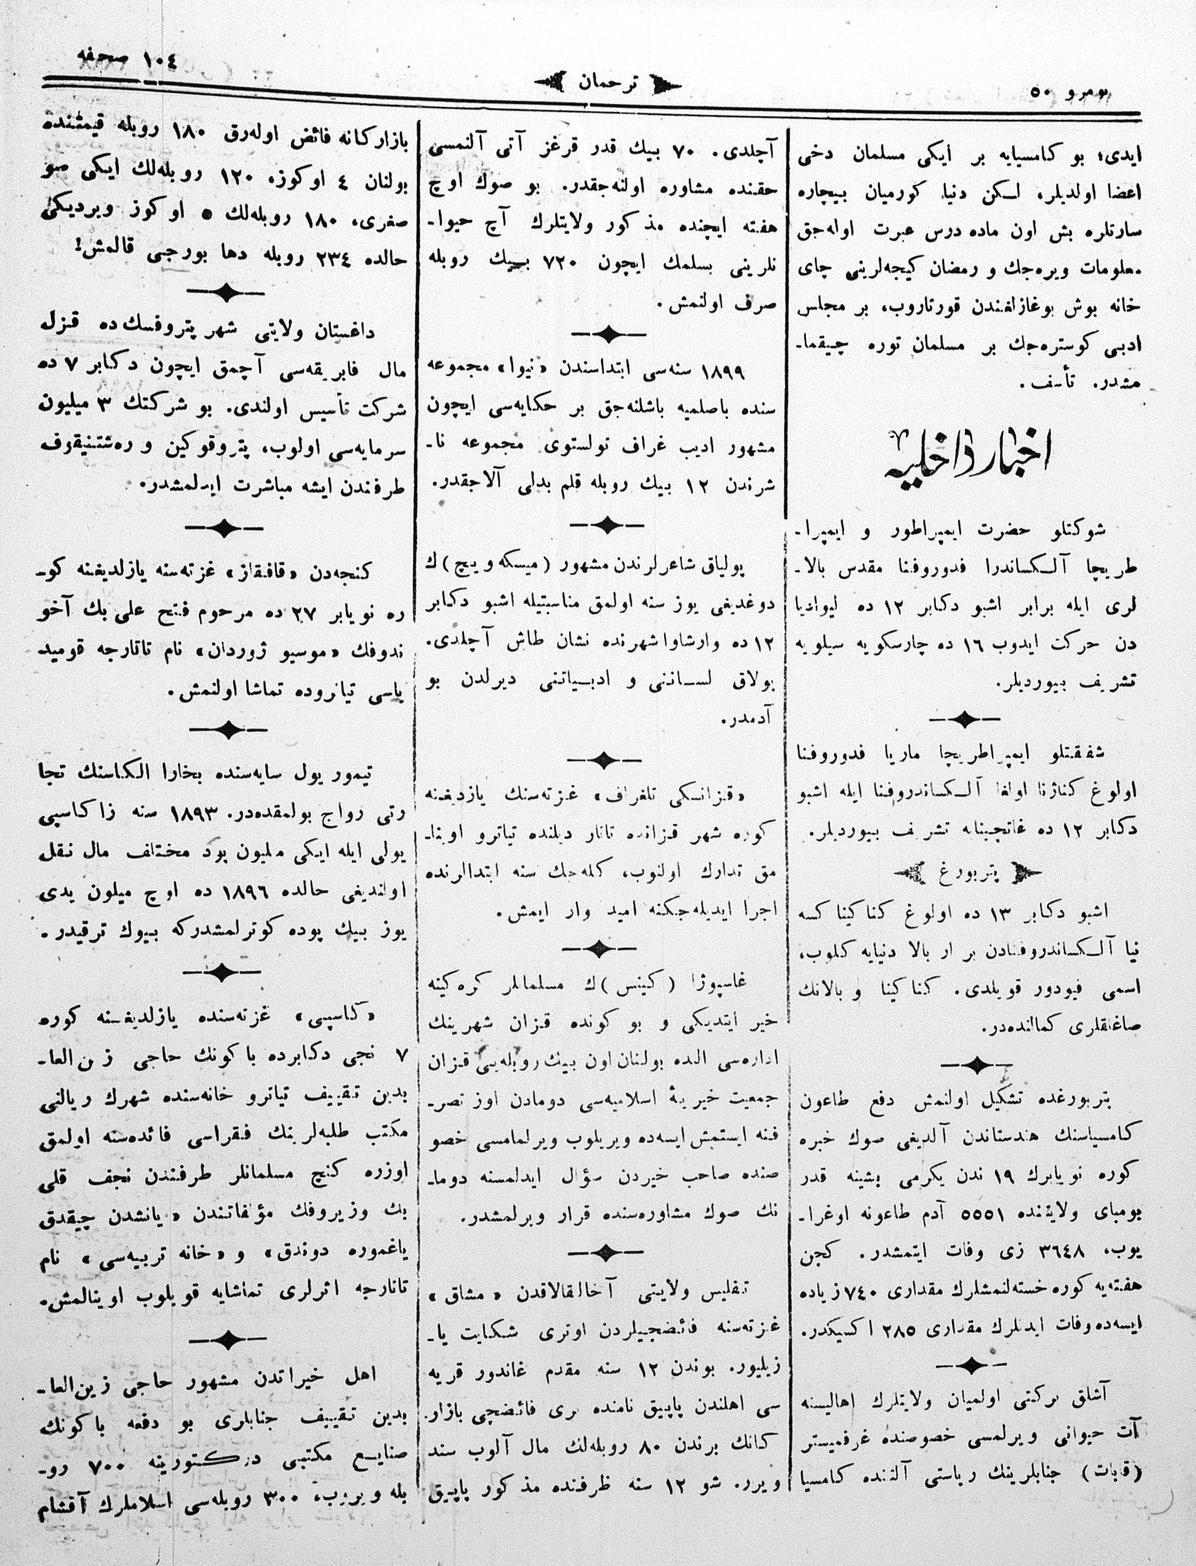 نومرو ٥٠
ترجمان
١٠٤ صحفه
ايدی؛ بو كامسيايه بر ايكی مسلمان دخی
اعضا اولديلر، لكن دنيا كورميان بيچاره
سارتلره بش اون ماده درس عبرت اوله‌جق
معلومات ويره‌جك و رمضان كيجه‌لرينی چای
خانه بوش بوغازلغندن قورتاروب، بر مجلس
ادبی كوستره‌جك بر مسلمان توره چيقما-
مشدر. تأسف.
اخبار داخليه
شوكتلو حضرت ايمپراطور و ايمپرا-
طريچا آلكساندرا فدوروفنا مقدس بالا-
لری ايله برابر اشبو دكابر ١٢ ده ليواديا
دن حركت ايدوب ١٦ ده چارسكويه سيلويه
تشريف بيورديلر.
شفقتلو ايمپراطريچا ماريا فدوروفنا
اولوغ كنازنا اولغا آلكساندروفنا ايله اشبو
دكابر ١٢ ده غاتچينايه تشريف بيورديلر.
پتربورغ
اشبو دكابر ١٣ ده اولوغ كناكينا كسه
نيا آلكساندروفنادن بر ار بالا دنيايه كلوب،
اسمی فيودور قويلدی. كناكينا و بالانك
صاغلقلری كمالنده‌در.
پتربورغده تشكيل اولنمش دفع طاعون
كامسياسنك هندستاندن آلديغی صوك خبره
كوره نويابرك ١٩ ندن يكرمی بشينه قدر
بومبای ولايتنده ٥٥٥١ آدم طاعونه اوغرا-
يوب، ٣٦٤٨ زی وفات ايتمشدر. كچن
هفته‌يه كوره خسته‌لنمشلرك مقداری ٧٤٠ زياده
ايسه‌ده وفات ايدنلرك مقداری ٢٨٥ اكسيكدر.
آشلق بركتی اولميان ولايتلرك اهاليسنه
آت حيوانی ويرلمسی خصوصنده غرفميستر
(قابات) جنابلرينك رياستی آلتنده كامسيا
آچلدی. ٧٠ بيك قدر قرغز آتی آلنمسی
حقنده مشاوره اولنه‌جقدر. بو صوك اوچ
هفته ايچنده مذكور ولايتلرك آچ حيوا-
نلرينی بسلمك ايچون ٧٢٠ بيك روبله
صرف اولنمش.
١٨٩٩ سنه‌سی ابتداسندن «نيوا» مجموعه
سنده باصلميه باشلنه‌جق بر حكايه‌سی ايچون
مشهور اديب غراف تولستوی مجموعه نا-
شرندن ١٢ بيك روبله قلم بدلی آلاجقدر.
پولياق شاعرلرندن مشهور (ميسكه‌ويچ)ك
دوغديغی يوز سنه اولمق مناسبتيله اشبو دكابر
١٢ ده وارشاوا شهرنده نشان طاش آچلدی.
پولاق لساننی و ادبياتنی ديرلدن بو
آدمدر.
«قزانسكی تلغراف» غزته‌سنك يازديغنه
كوره شهر قزانده تاتار ديلنده تياترو اوينا-
مق تدارك اولنوب، كله‌جك سنه ابتدالرنده
اجرا ايديله‌جكنه اميد وار ايمش.
غاسپوژا (كينس)ك مسلمانلر كره‌كينه
خير ايتديكی و بو كونده قزان شهرينك
اداره‌سی النده بولنان اون بيك روبله‌يی قزان
جمعيت خيريۀ اسلاميه‌سی دومادن اوز تصر-
فنه ايستمش ايسه‌ده ويريلوب ويرلمامسی خصو
صنده صاحب خيردن سؤال ايدلمسنه دوما-
نك صوك مشاوره‌سنده قرار ويرلمشدر.
تفليس ولايتی آخالقالاقدن «مشاق»
غزته‌سنه فائضجيلردن اوتری شكايت يا-
زيليور. بوندن ١٢ سنه مقدم غاندور قريه
سی اهلندن پاپيق نامنده بری فائضچی بازار-
كانك برندن ٨٠ روبله‌لك مال آلوب سند
ويرر. شو ١٢ سنه ظرفنده مذكور پاپيق
بازاركانه فائض اوله‌رق ١٨٠ روبله قيمتنده
بولنان ٤ اوكوز، ١٢٠ روبله‌لك ايكی صو
صغری، ١٨٠ روبله‌لك ٥ اوكوز ويرديكی
حالده ٢٣٤ روبله دها بورجی قالمش!
داغستان ولايتی شهر پتروفسك ده قزل
مال فابريقه‌سی آچمق ايچون دكابر ٧ ده
شركت تأسيس اولندی. بو شركتك ٣ ميليون
سرمايه‌سی اولوب، پتروقوكين و ره‌شتنيقوف
طرفندن ايشه مباشرت ايدلمشدر.
كنجه‌دن «قافقاز» غزته‌سنه يازلديغنه كو-
ره نويابر ٢٧ ده مرحوم فتح علی بك آخو
ندوفك «موسيو ژوردان» نام تاتارجه قوميد
ياسی تياتروده تماشا اولنمش.
تيمور يول سايه‌سنده بخارا الكاسنك تجا
رتی رواج بولمقده‌در. ١٨٩٣ سنه زاكاسپی
يولی ايله ايكی مليون پود مختلف مال نقل
اولنديغی حالده ١٨٩٦ ده اوچ ميلون يدی
يوز بيك پوده كوترلمشدركه بيوك ترقيدر.
«كاسپی» غزته‌سنده يازلديغنه كوره
٧ نجی دكابرده باكونك حاجی زين‌العا-
بدين تقييف تياترو خانه‌سنده شهرك ريالنی
مكتب طلبه‌لرينك فقراسی فائده‌سنه اولمق
اوزره كنج مسلمانلر طرفندن نجف قلی
بك وزيروفك مؤلفاتندن «يانشدن چيقدق
ياغموره دوندق» و «خانه تربيه‌سی» نام
تاتارجه اثرلری تماشايه قويلوب اوينالمش.
اهل خيراتدن مشهور حاجی زين‌العا-
بدين تقييف جنابلری بو دفعه باكونك
صنايع مكتبی درركتورينه ٧٠٠ رو-
بله ويروب، ٣٠٠ روبله‌سی اسلاملرك آقشام